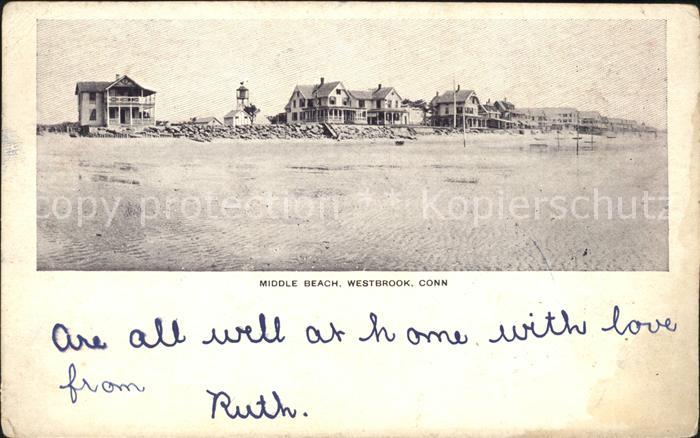 copy protection ** Kopierschutz
MIDDLE BEACH, WESTBROOK, CONN
Are all well at home. with love
from
Ruth.